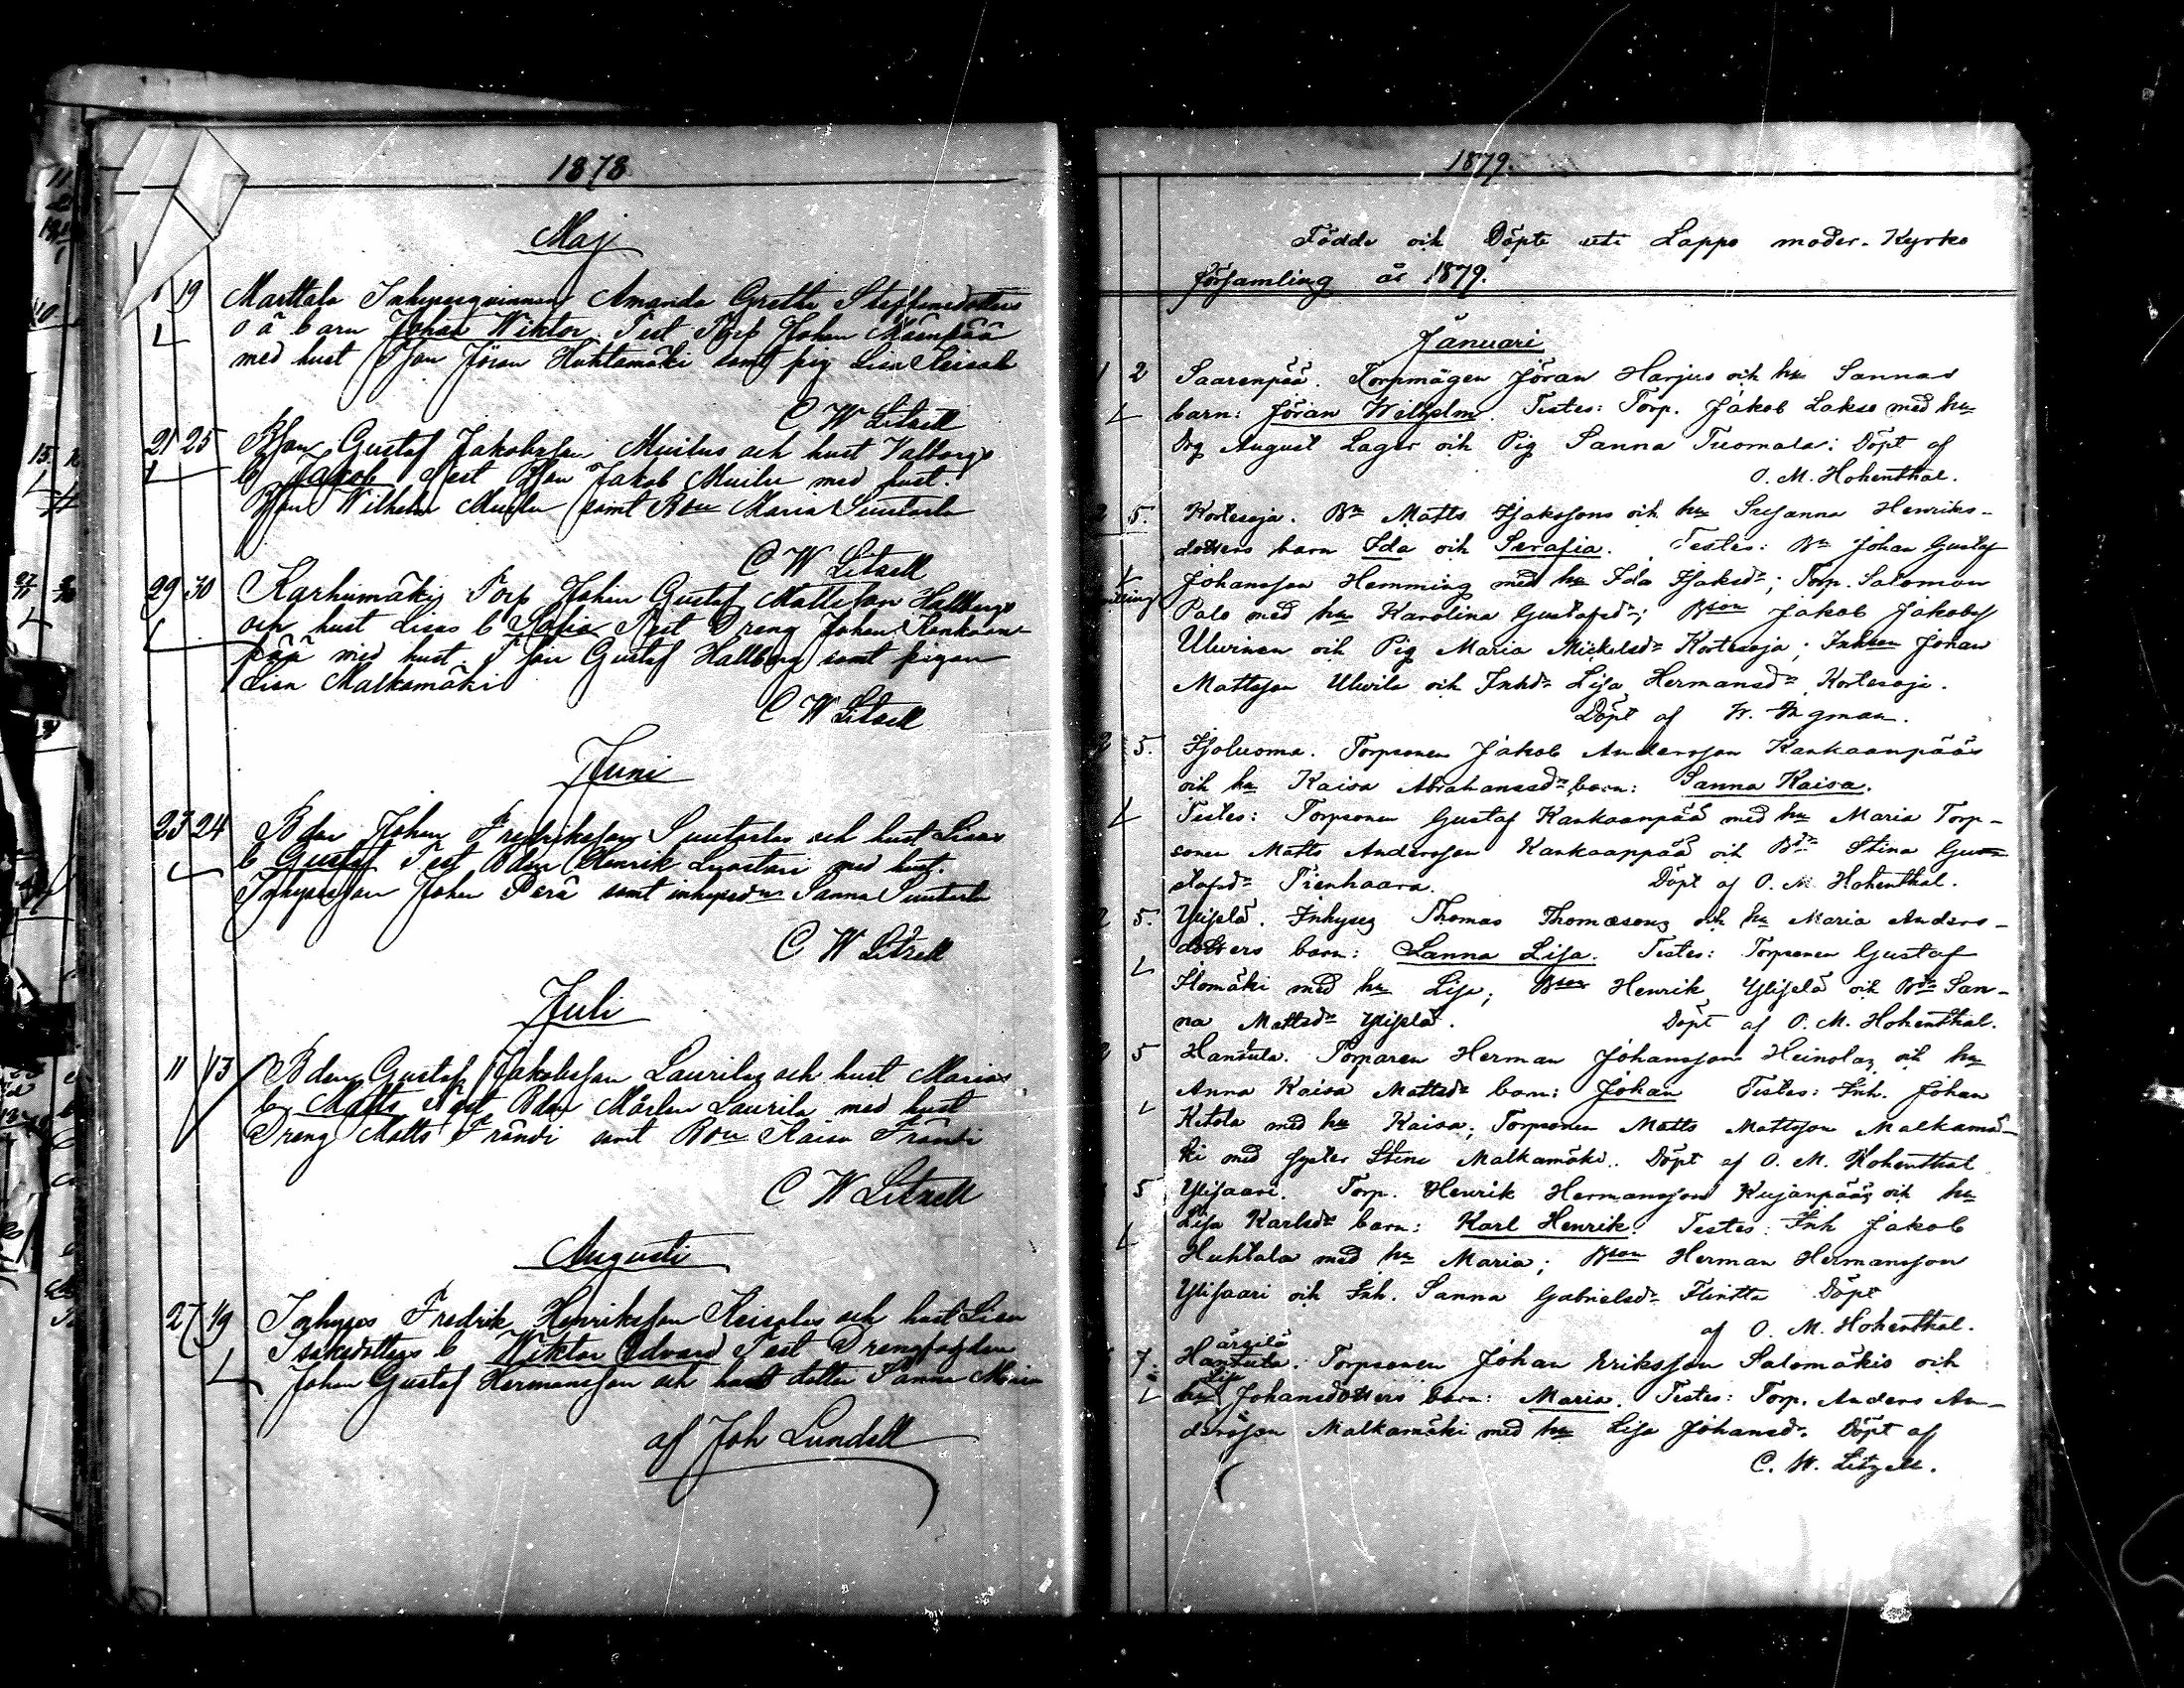 1878
Maj
19 Marttala Inhysesqvinnans Amanda Greta Staffansdotters
o ä barn Johan Wiktor Test Torp Johan Mäenpää
med hust Json Jöran Huhtamäki samt pig Lisa Keisala
C W Litzell
21 25 Bson Gustaf Jakobsson Muilus och hust Valborgs
b Jakob Test Bson Jakob Muilu med hust.
Bson Wilhelm Muilu samt Bdr Maria Suutarla
C W Litzell
29 30 Karhumäki Torp Johan Gustaf Mattsson Hallbergs
och hust Lisas b Sofia Test Dreng Johan Kankaan-
pää med hust. Tson Gustaf Hallberg samt pigan
Lisa Malkamäki
C W Litzell
Juni
23 24 Bden Johan Fredriksson Suutarlas och hust Lisas
b Gustaf Test Bden Henrik Luostari med hust.
Inhysesson Johan Perä samt inhysesdr Sanna Suutarla
C W Litzell
Juli
11 13 Bden Gustaf Jakobsson Laurilas och hust Marias
b Matts Test Bden Mårten Laurila med hust
Dreng Matts Frändi samt Bdr Kaisa Frändi
C W Litzell
Augusti
27 1/9 Inhyses Fredrik Henriksson Keisalas och hust Lisa
Isaksdotters b Wiktor Edvard Test
Johan Gustaf Hermansson och hust dotter Sanna Maria
af Joh Lundell
1879.
Födde och Döpte uti Lappo moder-Kyrko
församling år 1879.
Januari
1 2 Saarenpää. Torpmågen Jöran Harjus och hu Sannas
barn: Jöran Wilhelm. Testes: Torp. Jakob Lakso med hu
Drg August Lager och Pig Sanna Tuomala: Döpt af
O. M. Hohenthal.
2 5. Kortesoja. Bn Matts Isakssons och hu Susanna Henriks-
dotters barn Ida och Serafia. Testes: Bn Johan Gustaf
Johansson Hemming med hu Ida Isaksdr; Torp. Salomon
Palo med hu Karolina Gustafsdr; Bson Jakob Jakobss
Ulvinen och Pig Maria Mickelsdr Kortesoja; Inhson Johan
Mattsson Ulvila och Inhdr Lisa Hermansdr Kortesoja.
Döpt af W. Ingman.
2 5. Isoluoma. Torpsonen Jakob Andersson Kankaanpääs
och hu Kaisa Abrahamsdrs barn: Sanna Kaisa.
Testes: Torpsonen Gustaf Kankaanpää med hu Maria Torp-
sonen Matts Andersson Kankaappää och Bdr Stina Gu
stafsdr Tienhaara. Döpt af O. M. Hohenthal.
2 5. Ylijelä. Inhyses Thomas Thomassons och hu Maria Anders-
dotters barn: Sanna Lisa. Testes: Torpsonen Gustaf
Ilomäki med hu Lisa; Bson Henrik Ylijelä och Bdr San-
na Mattsdr Ylijelä. Döpt af O. M. Hohenthal.
2 5 Hantula. Torparen Herman Johansson Heinolas och hu
Anna Kaisa Mattsdrs barn: Johan Testes: Inh. Johan
Ketola med hu Kaisa; Torpsonen Matts Mattsson Malkamä-
ki med syster Stina Malkamäki. Döpt af O. M. Hohenthal
5 Ylisaari. Torp. Henrik Hermansson Kujanpääs och hu
Lisa Karlsdrs barn: Karl Henrik. Testes: Inh Jakob
Huhtala med hu Maria; Bson Herman Hermansson
Ylisaari och Inh. Sanna Gabrielsdr Flintta Döpt
af O. M. Hohenthal.
7. Hantula. Torpsonen Johan Eriksson Salomäkis och
hu Lisa Johansdotters barn: Maria. Testes: Torp. Anders An-
dersson Malkamäki med hu Lisa Johansdr. Döpt af
C. W. Litzell.